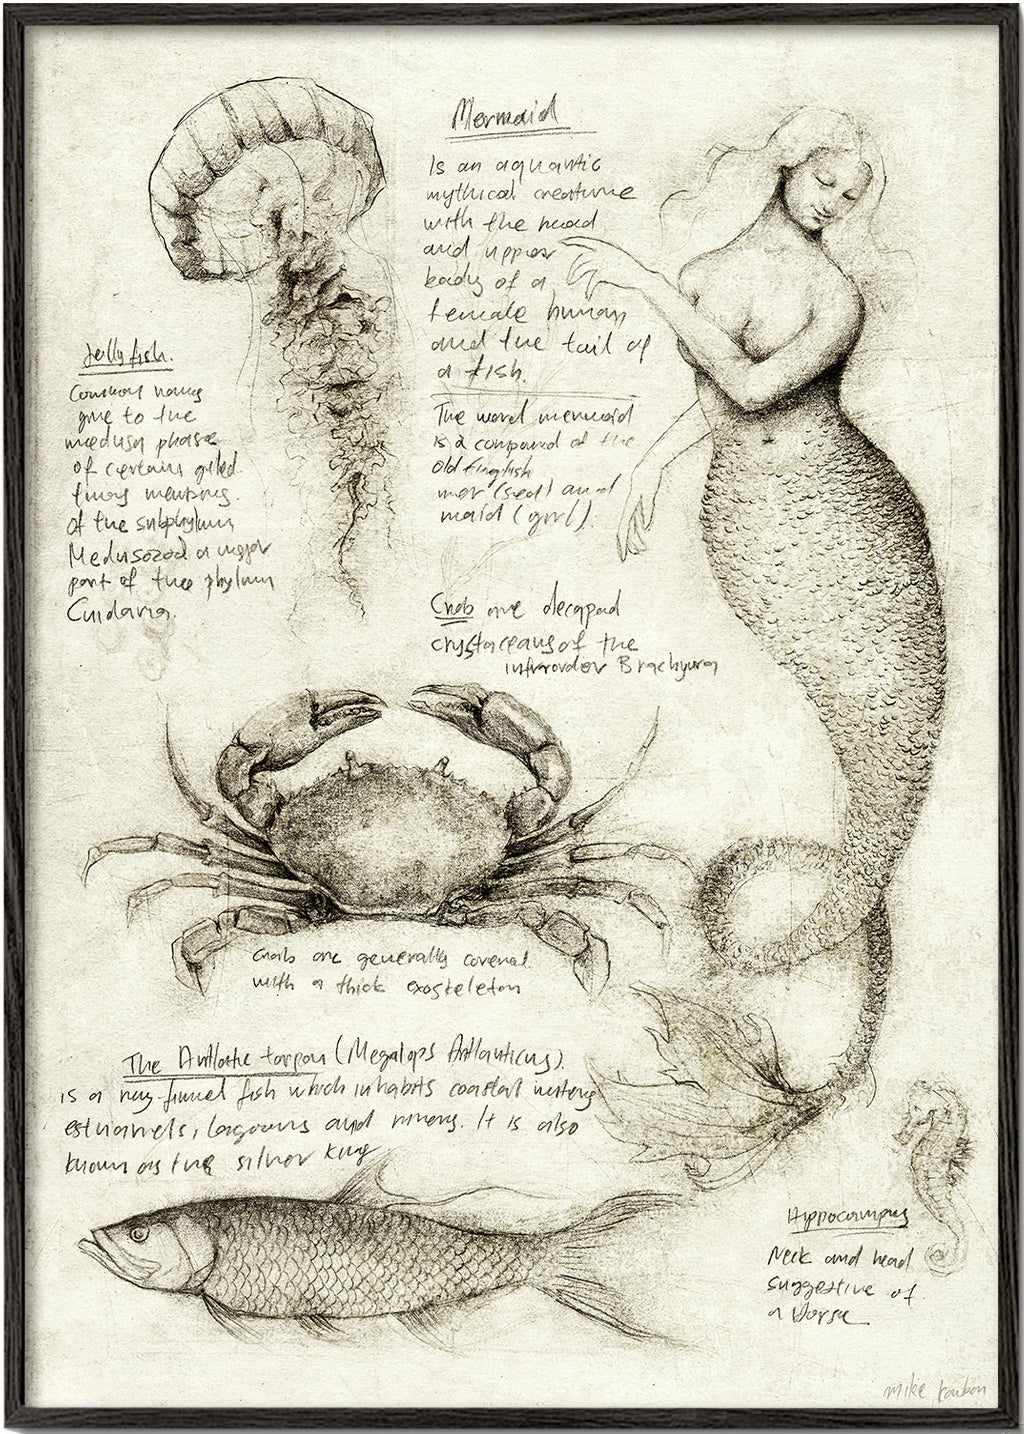 Mermaid
Is an aquantic
mythical creature
with the head
and upper
body of a
female human
and the tail of
a fish.
The word mermaid
is a compound of the
old English
mer (sea) and
maid (girl).
Jelly fish.
Common names
give to the
medusa phase
of certain
members
of the subphylum
Medusozoa a major
part of the phylum
Cnidaria.
Crab are decapod
crystaceans of the
infraorder Brachyura
Crab are generally covered
with a thick exoskeleton
The Atlantic tarpon (Megalops Atlanticus).
is a ray-finned fish which inhabits coastal waters
lagoons and rivers. It is also
known as the silver king
Hippocampus
Neck and head
suggestive of
a Horse
mike koubou